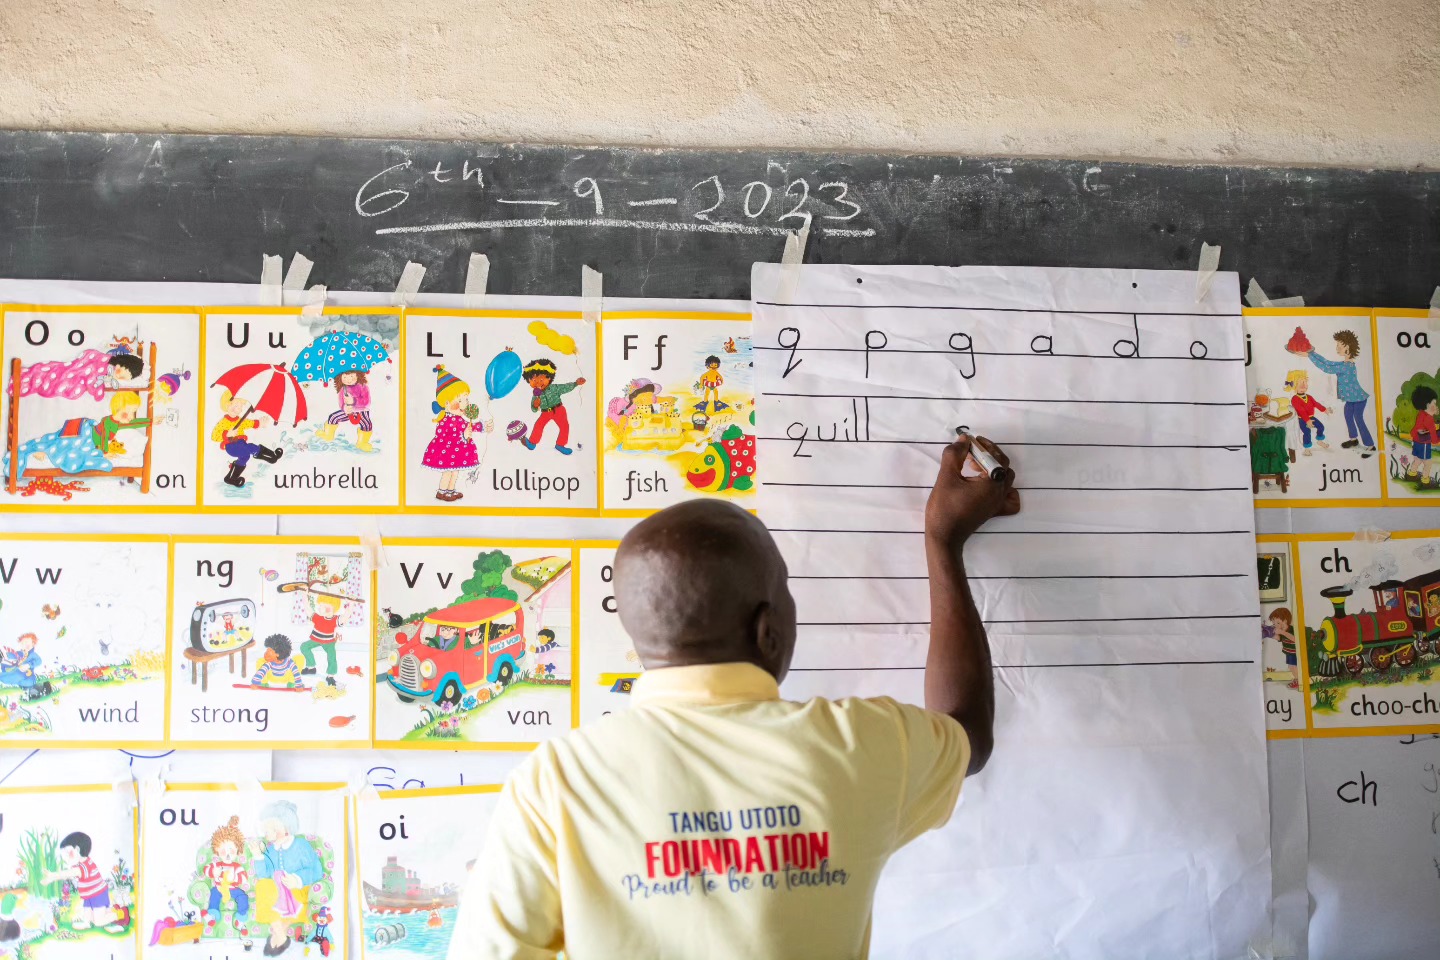 6th - 9 - 2023
O o
on
U u
umbrella
L l
lollipop
F f
fish
q p g a d o
quill
j
jam
oa
w
wind
ng
strong
V v
van
ay
ch
choo-ch
ou
oi
ch
TANGU UTOTO
FOUNDATION
Proud to be a teacher